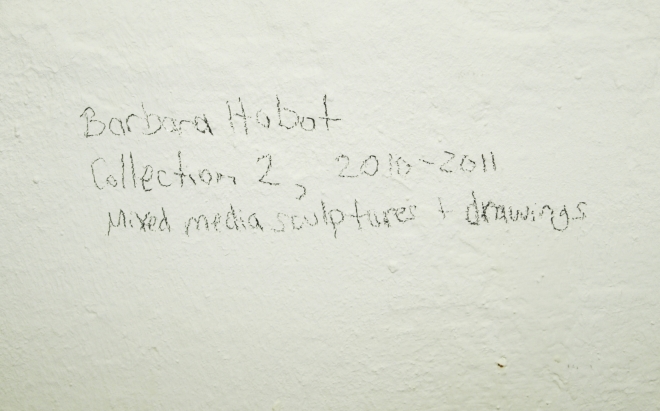 Barbara Hobot
Collection 2, 2010-2011
Mixed media sculptures + drawings